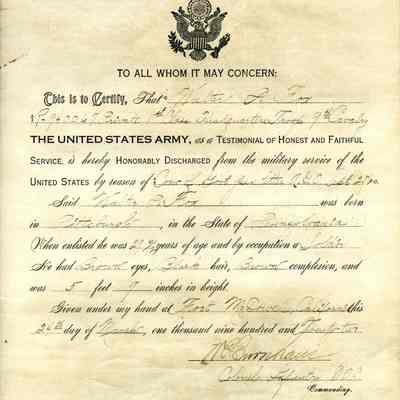 TO ALL WHOM IT MAY CONCERN:
This is to Certify, That Walter A. Fox
Private 1st Class Headquarters Troop 9th Cavalry
THE UNITED STATES ARMY, as a TESTIMONIAL OF HONEST AND FAITHFUL
SERVICE, is hereby HONORABLY DISCHARGED from the military service of the
UNITED STATES by reason of
Said Walter A. Fox was born
in Pittsburgh, in the State of Pennsylvania
When enlisted he was years of age and by occupation a Soldier
He had Brown eyes, Black hair, Brown complexion, and
was 5 feet 9 inches in height.
Given under my hand at Fort McDowell, California this
26th day of one thousand nine hundred and
Colonel Infantry
Commanding.